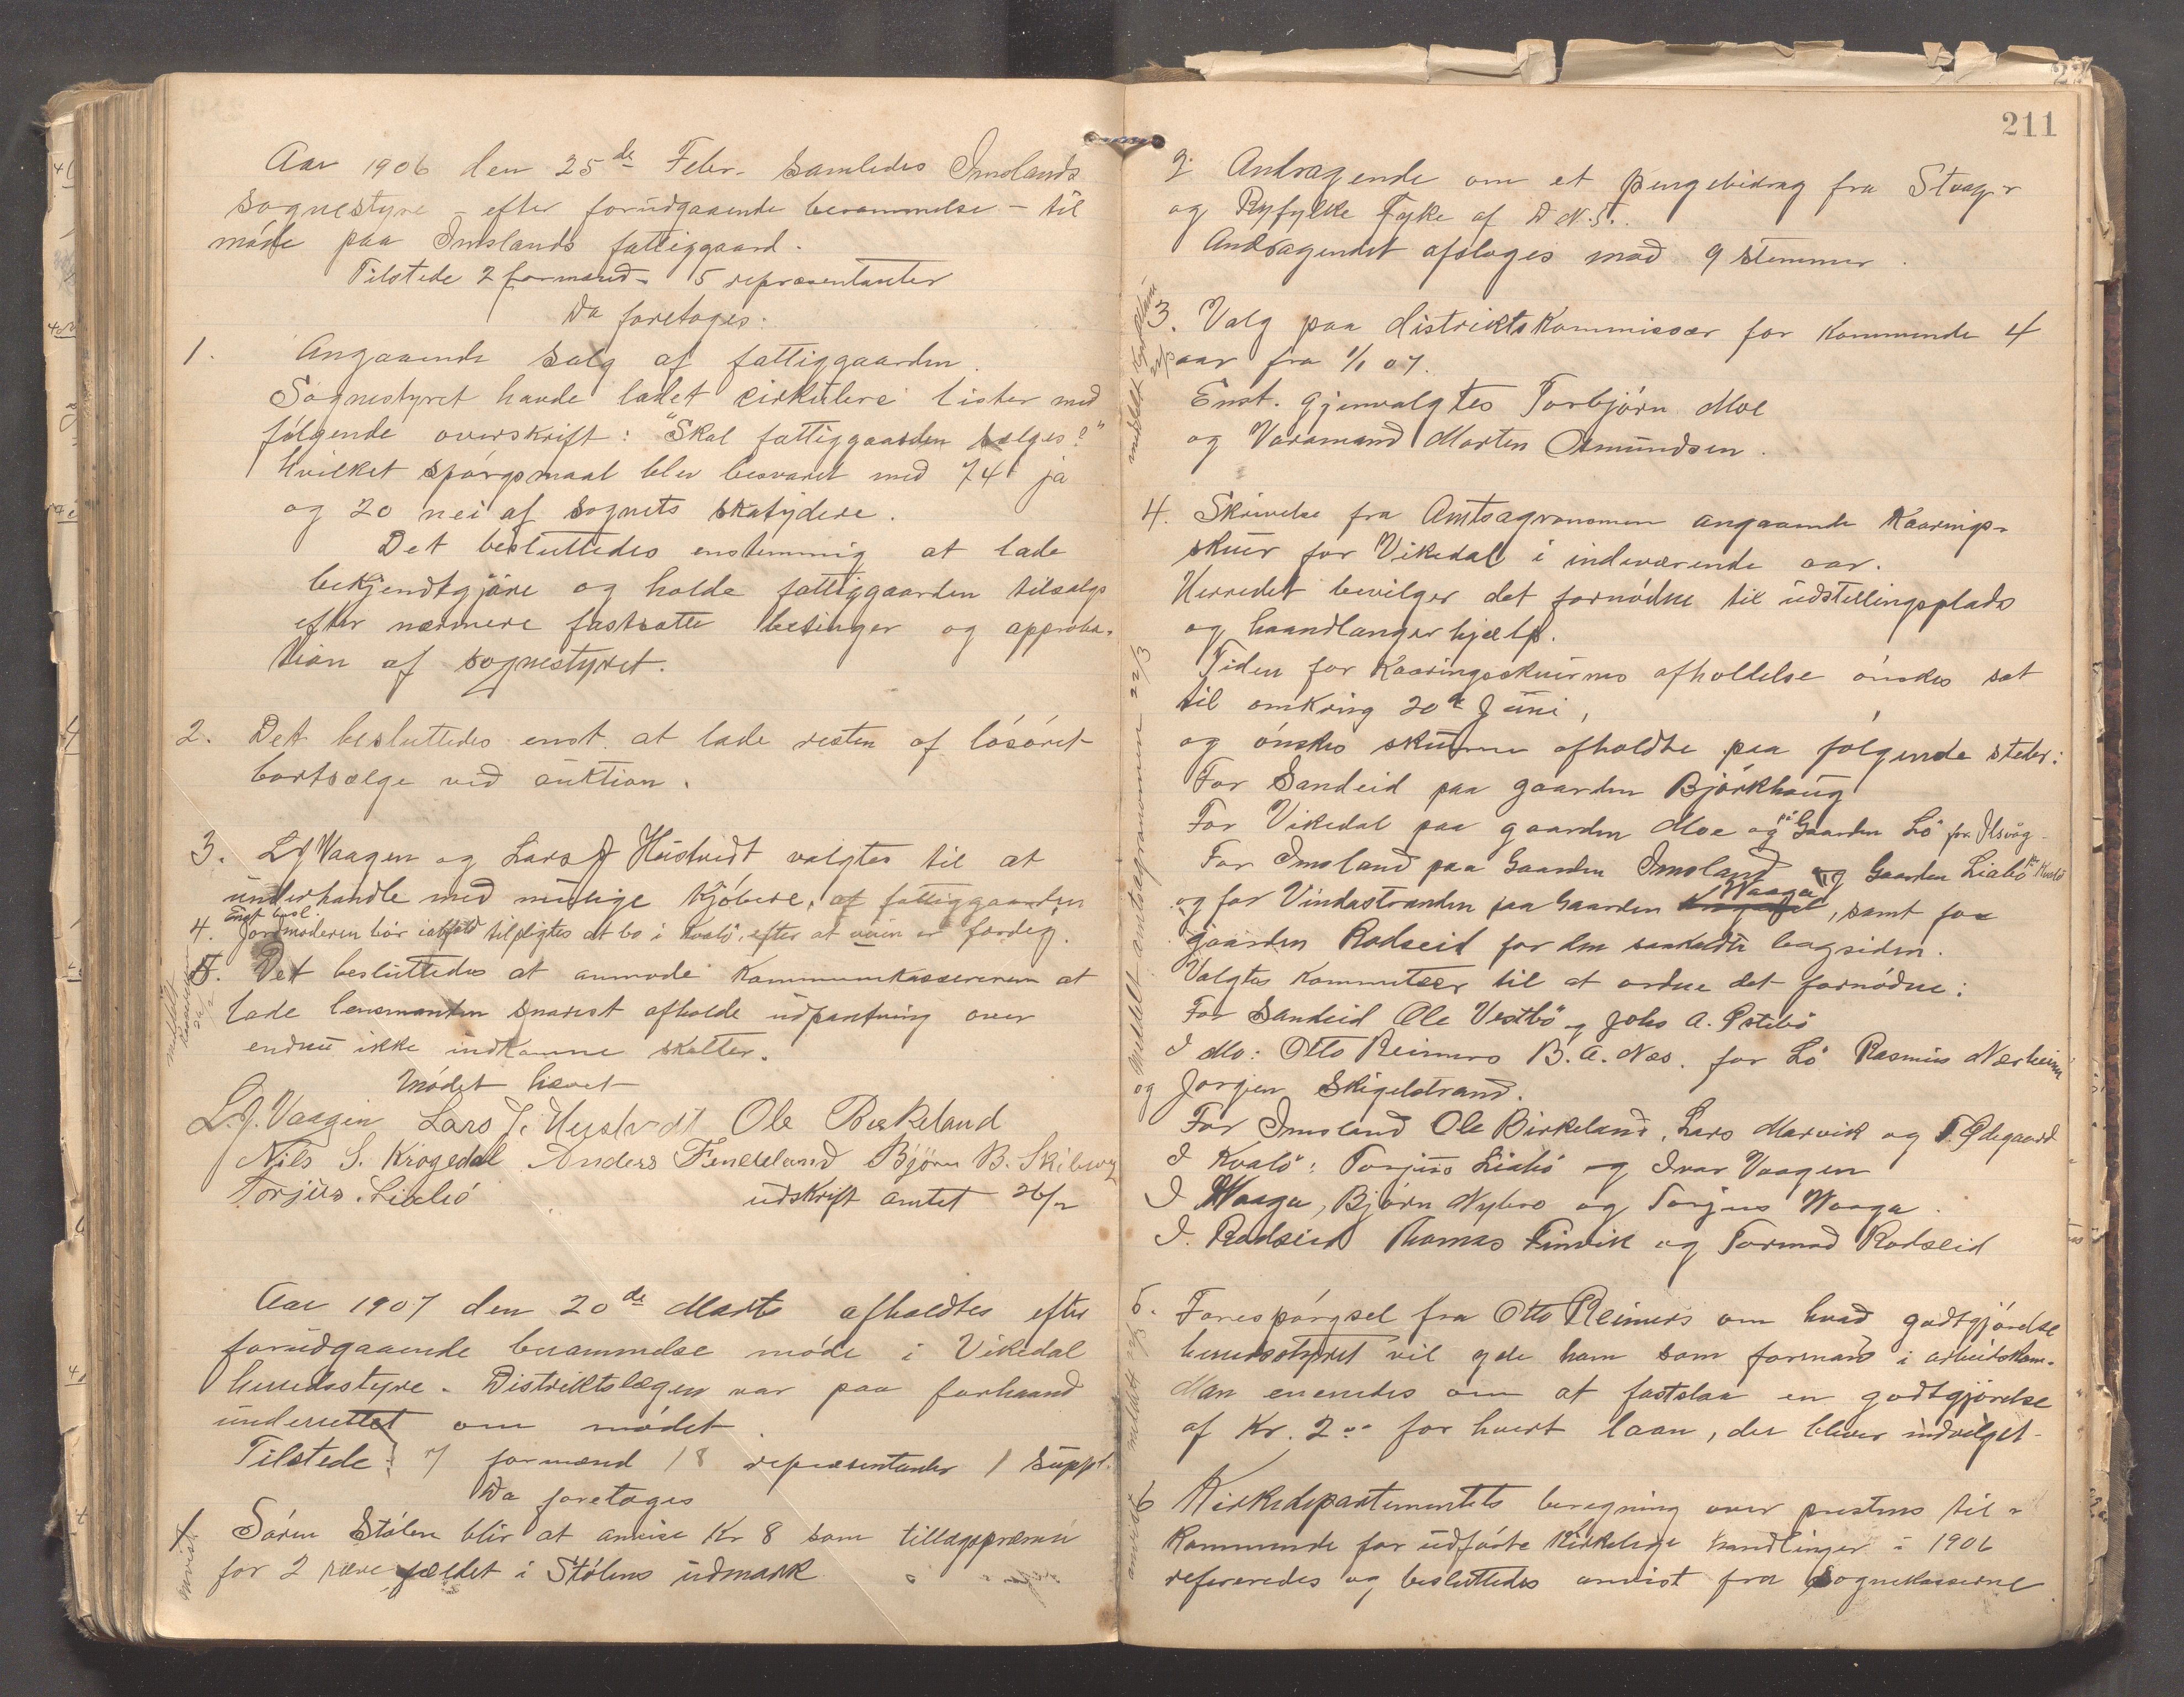 Aar 1906 den 25de Febr. samledes Imslands
sognestyre – efter forudgaaende berammelse – til
møde paa Imslands fattiggaard.
Tilstede 2 formænd – 5 repræsentanter
Da foretoges:
1. Angaaende salg af fattiggaarden.
Sognestyret havde ladet cirkulere lister med
følgende overskrift: "Skal fattiggaarden sælges?"
hvilket spørgsmaal blev besvaret med 74 ja
og 20 nei af sognets skatydere.
Det besluttedes enstemmig at lade
bekjendtgjøre og holde fattiggaarden tilsalgs
efter nærmere fastsatte betinger og approba-
tion af sognestyret.
2. Det besluttedes enst. at lade resten af løsøret
bortsælge ved auktion.
3. L J Vaagen og Lars J Hustvedt valgtes til at
underhandle med mulige kjøbere, af fattiggaarden
Enst besl.
4. Jordmoderen bør ialfald tilpligtes at bo i Kvalø, efter at veien er færdig.
5. Det besluttedes at anmode kommunekassereren at
lade lensmanden snarest afholde udpantning over
endnu ikke indkomne skatter.
meddelt kassereren 26/2
Mødet hævet
L. J. Vaagen Lars J. Hustvedt Ole Birkeland
Nils S. Krogedal Anders Fenneland Bjørn B. Skibevig
Torjus Liabø udskrift amtet 26/2
Aar 1907 den 20de Marts afholdtes efter
forudgaaende berammelse møde i Vikedal
herredsstyre. Distriktslægen var paa forhaand
underrettet om mødet.
Tilstede: 7 formænd 18 repræsentanter 1 suppl.
Da foretoges
1. Søren Stølen blir at anvise Kr 8 som tillægspræmie
for 2 ræve fældet i Stølens udmark
anvist.
211
2. Andragende om et pengebidrag fra Stvag-r
og Ryfylke Fylke af D.N.T..
Andragendet afsloges mod 9 stemmer.
3. Valg paa distriktskommissær for kommende 4
aar fra 1/1 07.
Enst. gjenvalgtes Torbjørn Moe
og Varamand Morten Osmundsen.
4. Skrivelse fra Amtsagronomen angaaende Kaarings-
skuer for Vikedal i indeværende aar.
Herredet bevilger det fornødne til udstillingsplads
og haandlangerhjælp.
Tiden for Kaaringsskuernes afholdelse ønskes sat
til omkring 20de Juni,
og ønskes skuerne afholdte paa følgende steder:
For Sandeid paa gaarden Bjørkhaug
For Vikedal paa gaarden Moe og på Gaarden Lø for Ilsvåg
For Imsland paa Gaarden Imsland og Gaarden Liabø pr Kvalø
og for Vindastranden paa Gaarden Waaga, samt for
gaarden Rodseid for den saakaldte bagsiden.
Valgtes kommiteer til at ordne det fornødne:
For Sandeid Ole Vestbø og Johs A. Østebø
I Mo: Otto Reimers B. A. Næs. for Lø Rasmus Nærheim
og Jørgen Skigelstrand.
For Imsland Ole Birkeland, Lars Marvik og T. Ødegaard
I Kvalø: Torjus Liabø og Ivar Vaagen
I Waaga, Bjørn Nybro og Torjus Waaga.
I. Rodseid Thomas Finvik og Tormod Rodseid
meddelt amtsagronomen 22/3
5. Forespørgsel fra Otto Reimers om hvad godtgjørelse
herredsstyret vil yde ham som formand i arbeidskom.
Man enendes om at fastslaa en godtgjørelse
af Kr. 2.00 for hvert laan, der bliver indvilget.
6 Kirkedepartementets beregning over prestens til-
kommende for udførte kirkelige handlinger i 1906
refereredes og besluttedes anvist fra sognekasserne
anvist